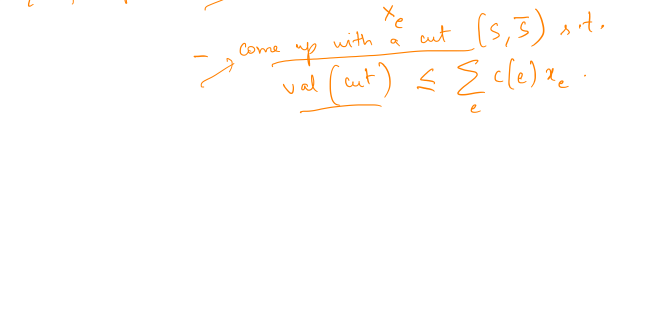 x_e
- come up with a cut (S, S̅) s.t.
val (cut) ≤ Σ_e c(e) x_e .